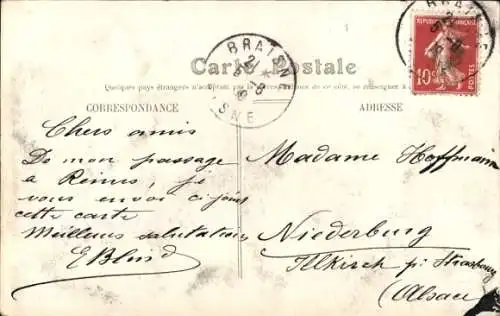 Carte Postale
Quelques pays étrangers n'acceptant pas la correspondance de ce côté, se renseigner à
CORRESPONDANCE
ADRESSE
REPUBLIQUE FRANÇAISE
10c
POSTES
Chers amis
De mon passage
a Reims, je
vous envoi ci-joint
cette carte
Meilleures salutations
Madame Hoffmann
Niederburg
Illkirch p: Strasbourg
(Alsace)